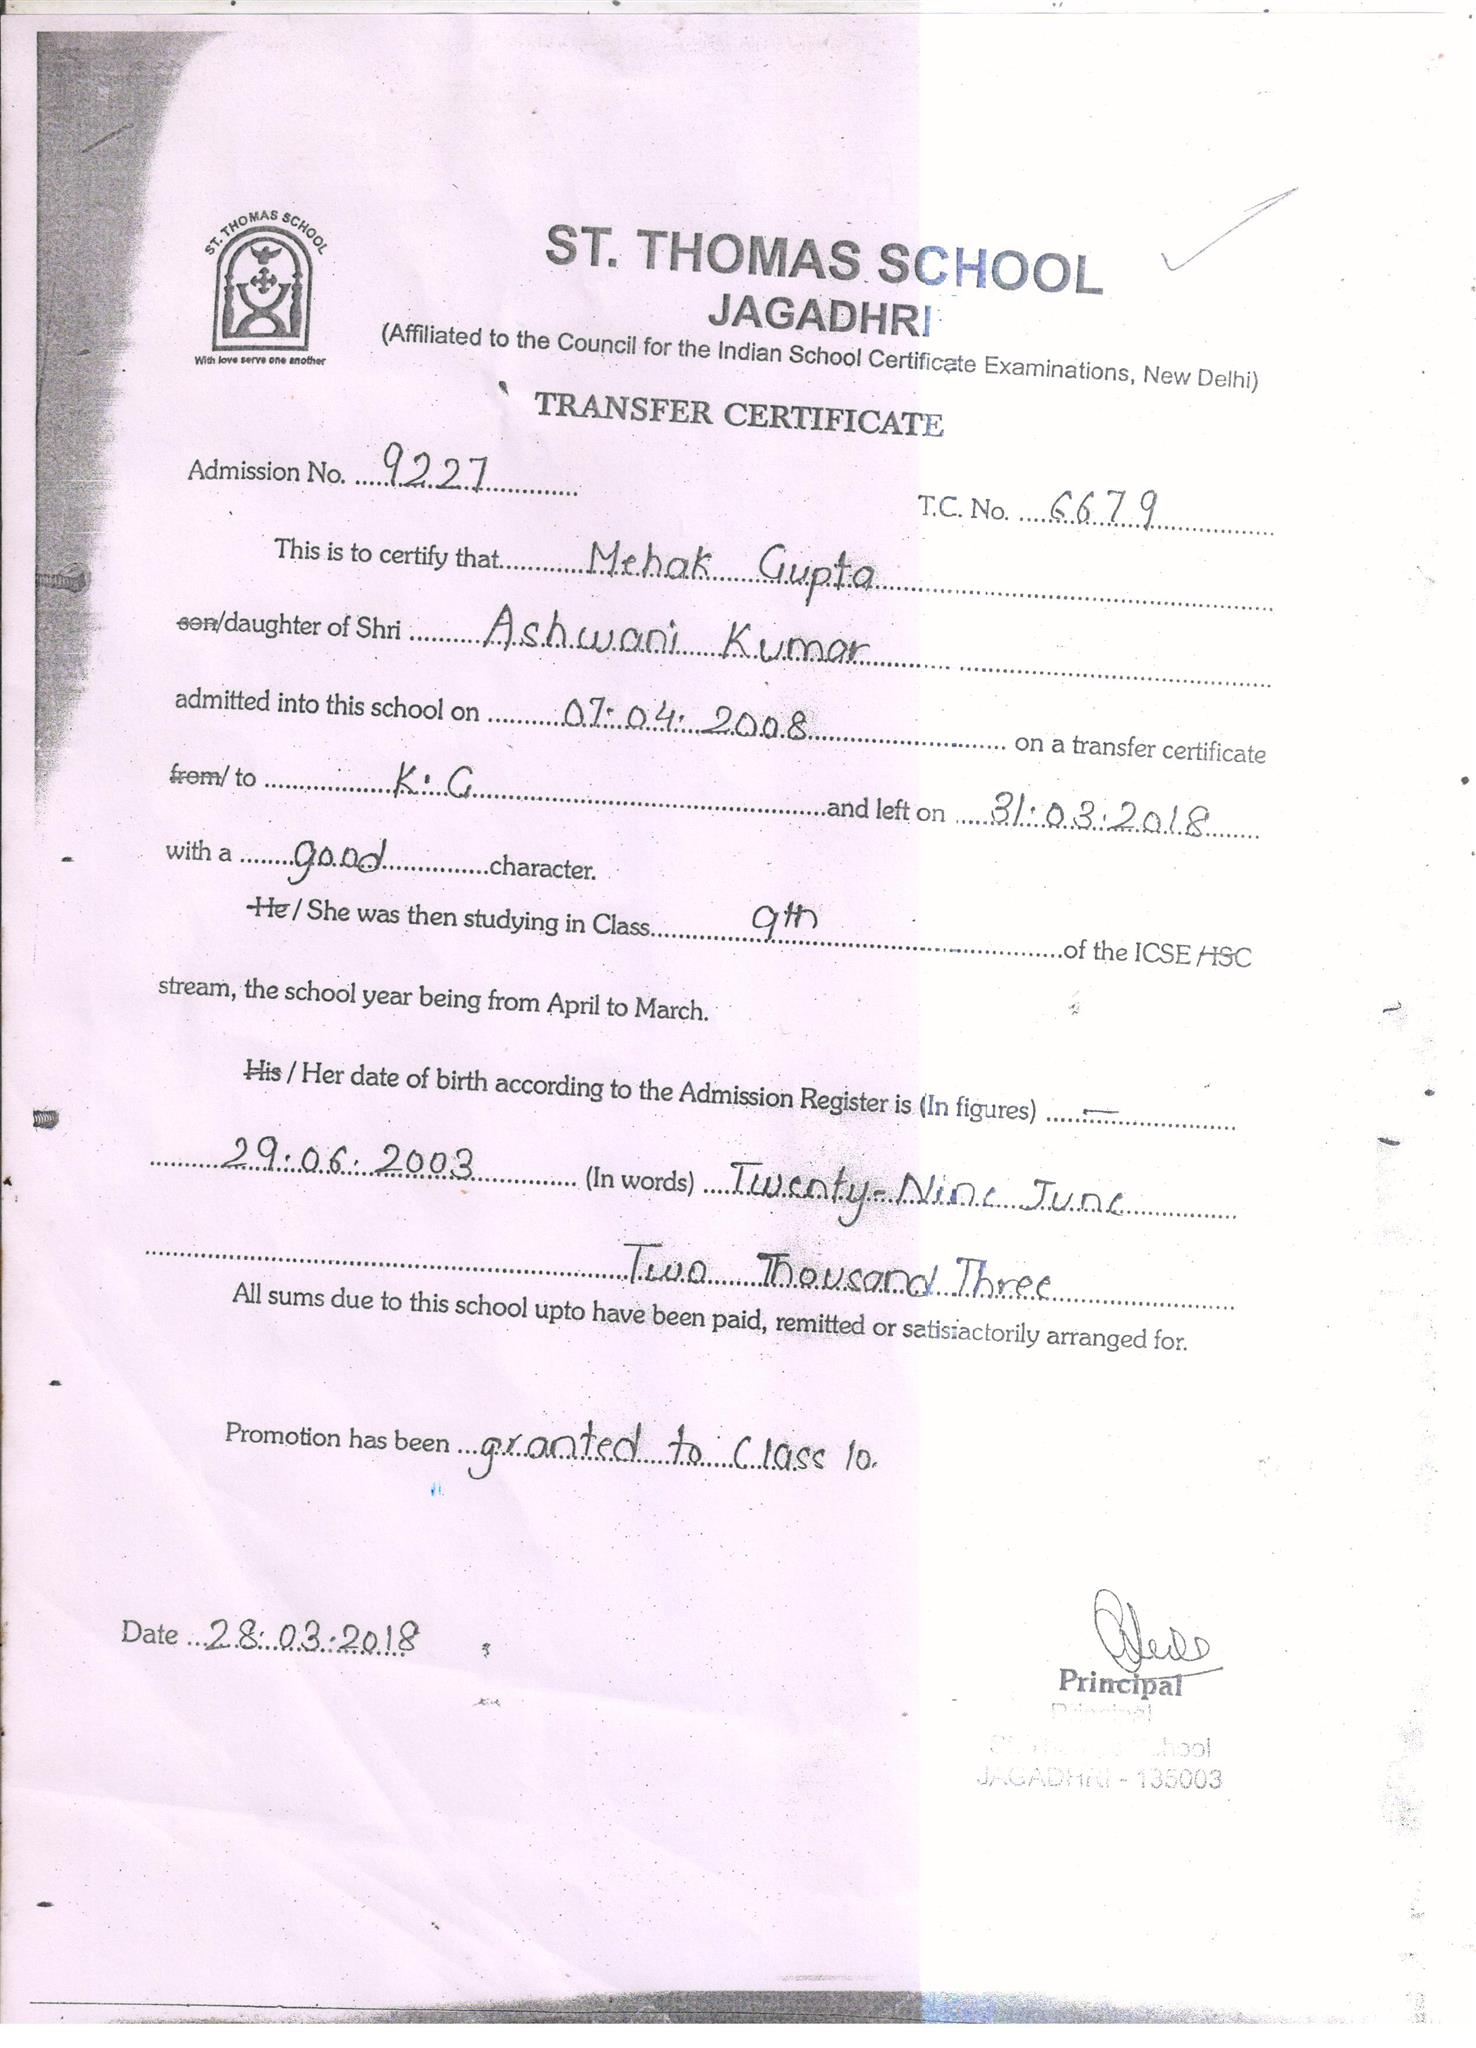 ST. THOMAS SCHOOL
With love serve one another
ST. THOMAS SCHOOL
JAGADHRI
(Affiliated to the Council for the Indian School Certificate Examinations, New Delhi)
TRANSFER CERTIFICATE
Admission No. 9227
T.C. No. 6679
This is to certify that Mehak Gupta
son/daughter of Shri Ashwani Kumar
admitted into this school on 07.04.2008 on a transfer certificate
from/ to K.G and left on 31.03.2018
with a good character.
He / She was then studying in Class 9th of the ICSE /HSC
stream, the school year being from April to March.
His / Her date of birth according to the Admission Register is (In figures) —
29.06.2003 (In words) Twenty-Nine June
Two Thousand Three
All sums due to this school upto have been paid, remitted or satisfactorily arranged for.
Promotion has been granted to Class 10.
Date 28.03.2018
Principal
Principal
School
JAGADHRI - 135003